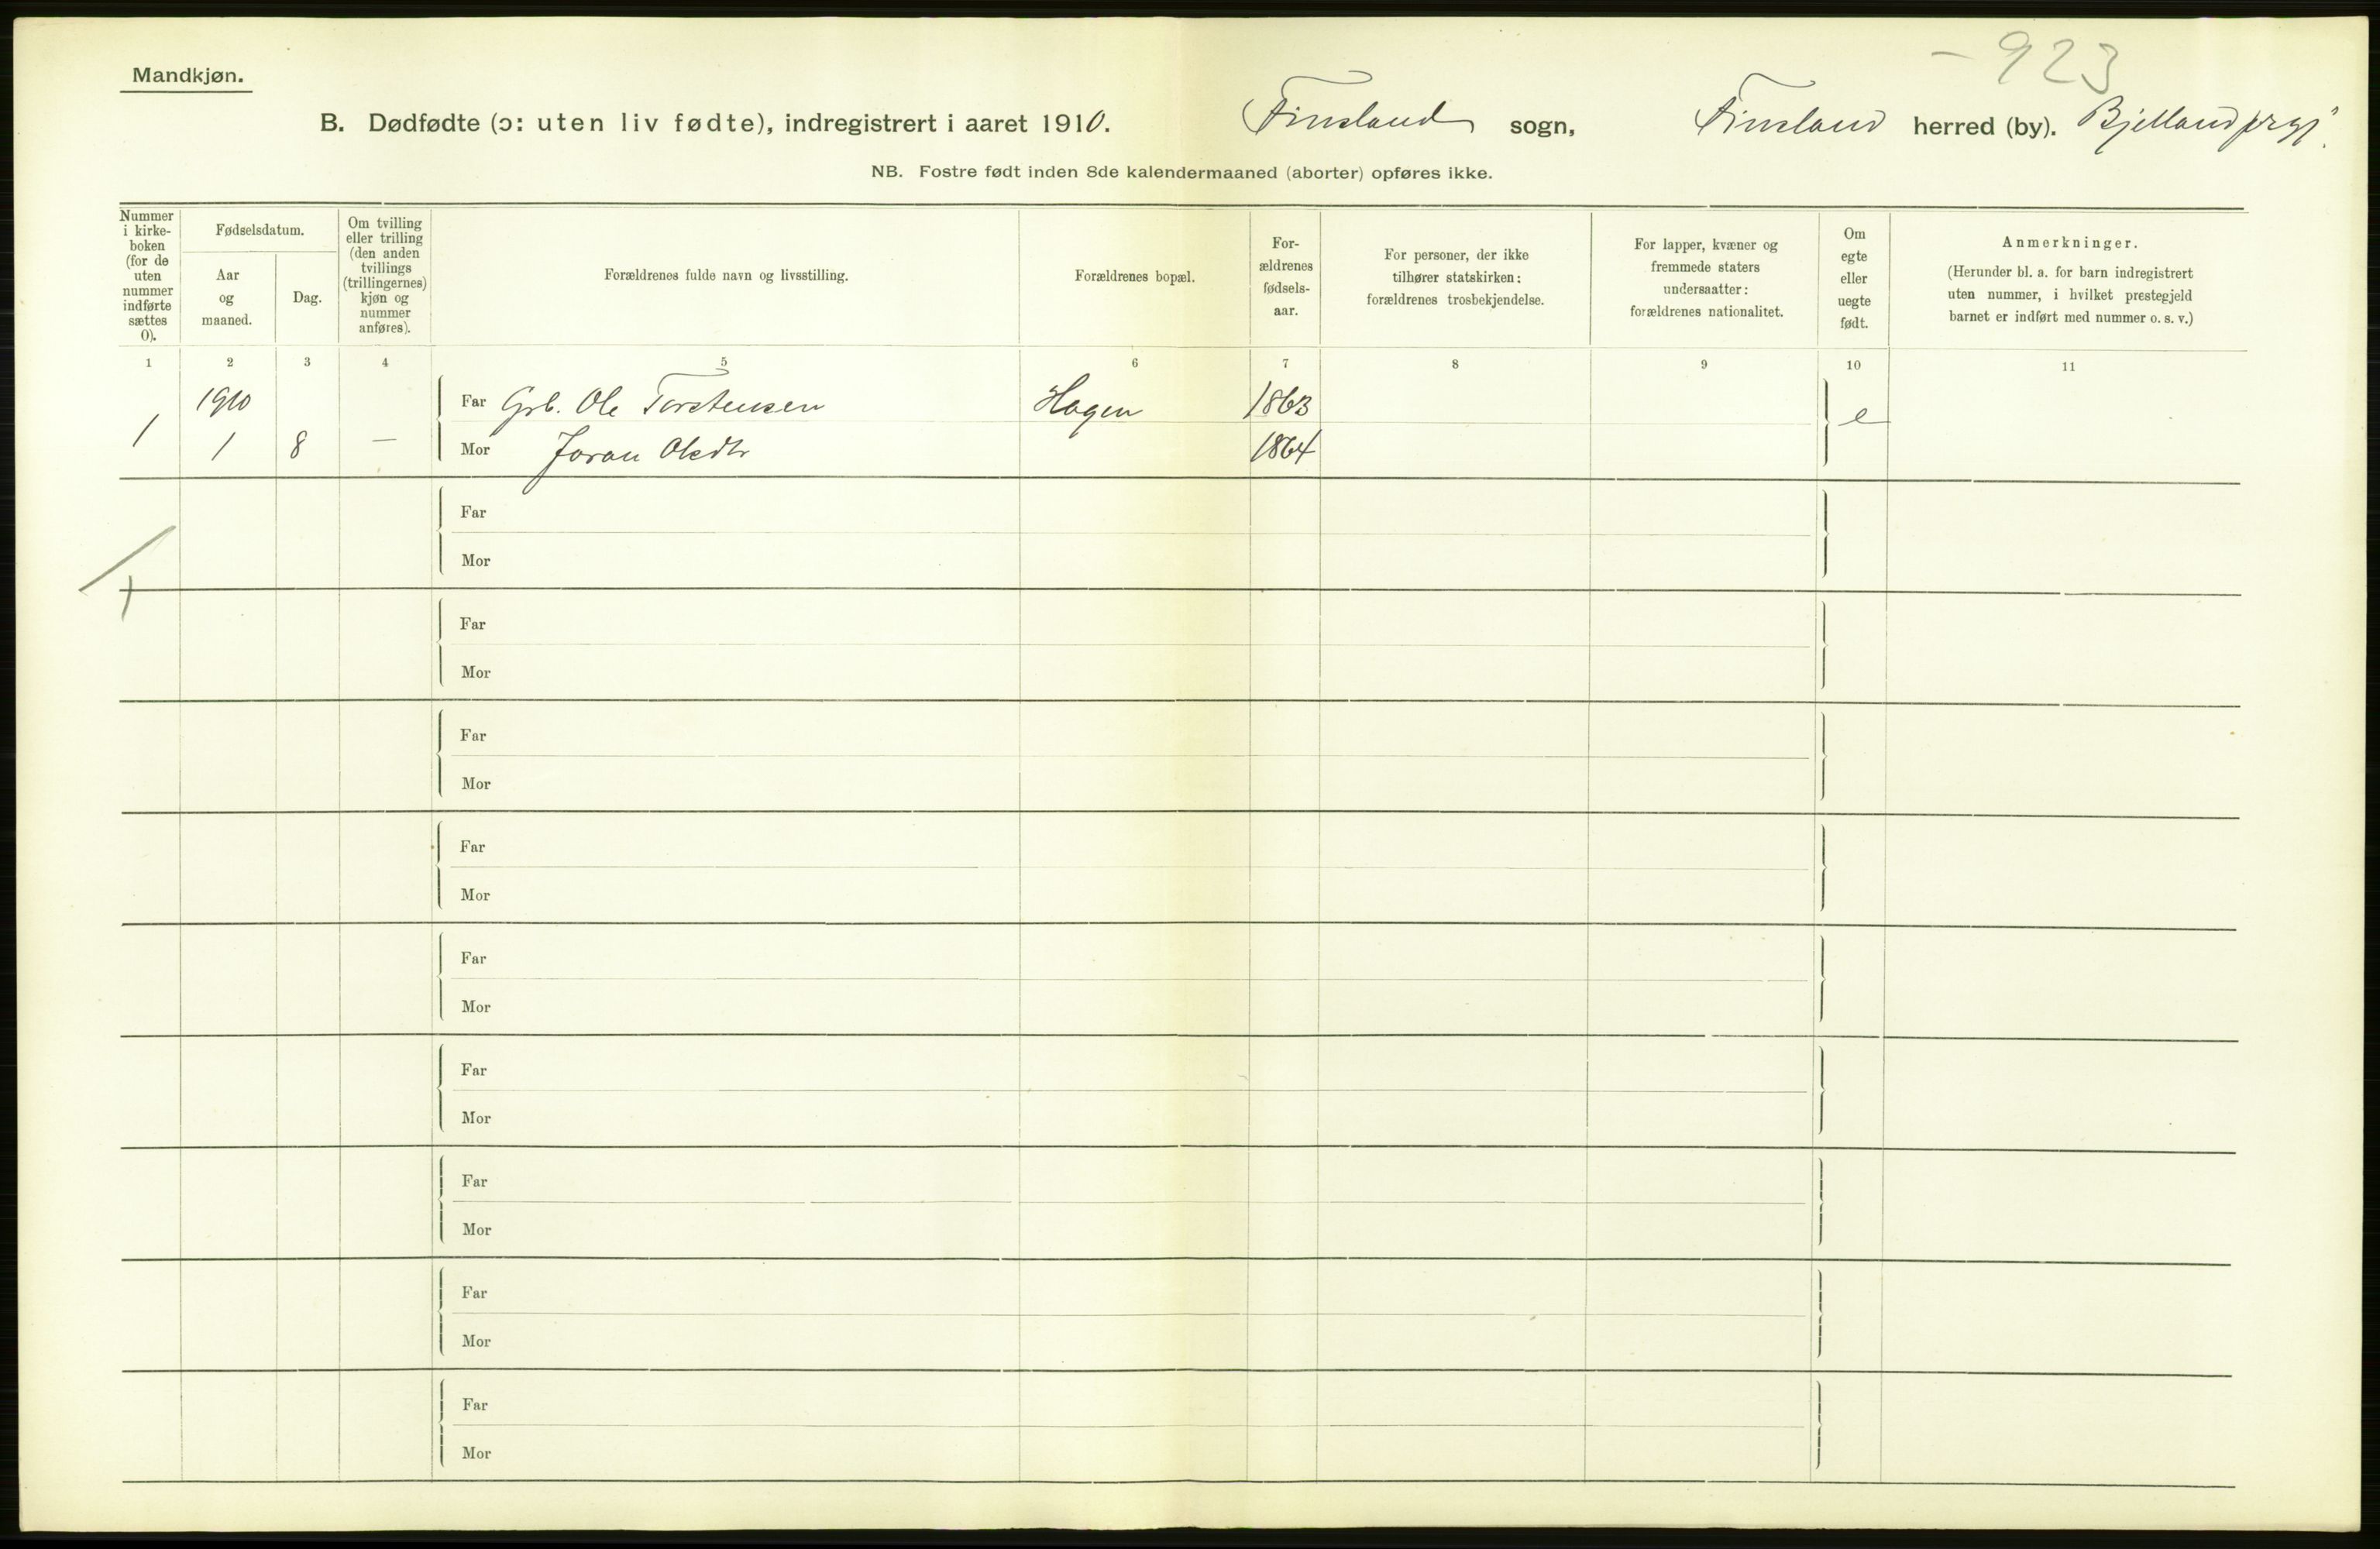 - 923
Mandkjøn.
B. Dødfødte (ɔ: uten liv fødte), indregistrert i aaret 1910. Finsland sogn, Finsland herred (by). Bjelland prgj.
NB. Fostre født inden 8de kalendermaaned (aborter) opføres ikke.
Nummer i kirke-boken (for de uten nummer indførte sættes 0).
Fødselsdatum.
Aar og maaned.
Dag.
Om tvilling eller trilling (den anden tvillings (trillingernes) kjøn og nummer anføres).
Forældrenes fulde navn og livsstilling.
Forældrenes bopæl.
For-ældrenes fødsels-aar.
For personer, der ikke tilhører statskirken: forældrenes trosbekjendelse.
For lapper, kvæner og fremmede staters undersaatter: forældrenes nationalitet.
Om egte eller uegte født.
Anmerkninger.
(Herunder bl. a. for barn indregistrert uten nummer, i hvilket prestegjeld barnet er indført med nummer o. s. v.)
1 2 3 4 5 6 7 8 9 10 11
1910 Far Grb. Ole Torstensen Hagen 1863 e
1 1 8 — Mor Joran Olsdtr 1864
Far
Mor
1
Far
Mor
Far
Mor
Far
Mor
Far
Mor
Far
Mor
Far
Mor
Far
Mor
Far
Mor